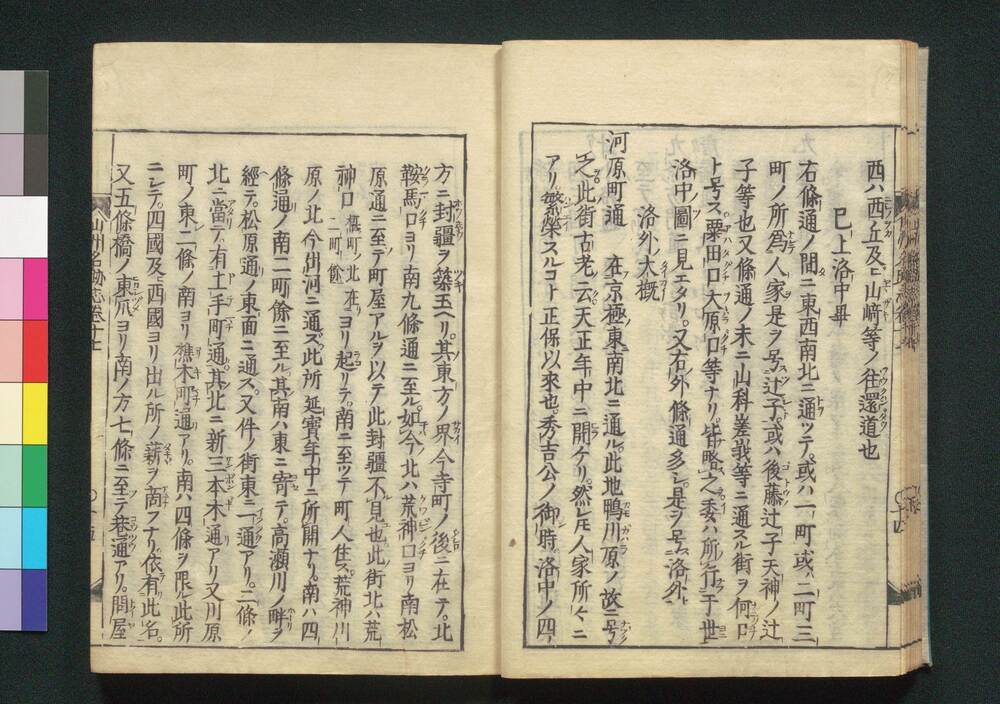 西ハ西ノ丘及ヒ山﨑等ノ往還道也
已上洛中畢
右條通ノ間ニ東西南北ニ通ツテ或ハ一町或ハ二町三
町ノ所爲人家是ヲ号辻子或ハ後藤辻子天神ノ辻
子等也又條通ノ末ニ山科嵯峩等ニ通スル街ヲ何口
ト号ス粟田口大原口等ナリ皆略之委ハ所行于世
洛中ノ圖ニ見エタリ又右ノ外條通多シ是ヲ号洛外ト
洛外大概
河原町通 在京極東南北ニ通ル此地鴨川原ノ故ニ号
之此街古老ニ云天正年中ニ開ケリ然レ𪜈人家所々ニ
アリ繁榮スルコト正保以來也秀吉公ノ御時洛中ノ四
方ニ封疆ヲ築玉ヘリ其東方ノ界今寺町ノ後ニ在テ北
鞍馬口ヨリ南九條通ニ至ル如今北ハ荒神口ヨリ南松
原通ニ至テ町屋アルヲ以テ此封疆不見也此街北ハ荒
神口 在楲町ノ北二町餘 ヨリ起リテ南ニ至ツテ町人住ス荒神川
原ノ北今出河ニ通ズ此所延寳年中ニ所開ナリ南ハ四
條通ノ南二町餘ニ至ル其南ハ東ニ寄テ高瀬川ノ畔ヲ
經テ松原通ノ東面ニ通ス又件ノ街東ニ一通アリ二條ノ
北ニ當テ有土手町通其北ニ新三本木通アリ又川原
町ノ東二條ノ南ヨリ樵木町通アリ南ハ四條ヲ限ル此所
ニシテ四國及ヒ西國ヨリ出ル所ノ薪ヲ商フナリ依有此名
又五條橋ノ東爪ヨリ南ノ方七條ニ至テ巷通アリ問屋
山州名跡志卷十七